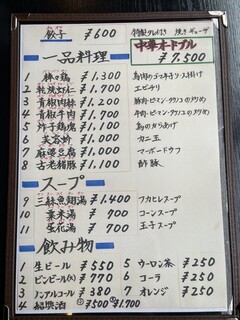 餃子 ¥600
特製タレ付き 焼きギョーザ
中華オードブル
¥7,500
一品料理
1 棒々鶏 ¥1,300 鳥肉のゴマ辛子ソース掛け
2 乾焼虾仁 ¥1,700 エビチリ
3 青椒肉絲 ¥1,200 豚肉・ピーマン・タケノコのオイスター炒め
4 青椒牛肉絲 ¥1,400 牛肉・ピーマン・タケノコのオイスター炒め
5 炸子鶏塊 ¥1,100 鳥のからあげ
6 芙蓉蟹 ¥1,100 カニ玉
7 麻婆豆腐 ¥1,000 マーボードウフ
8 古老豬肉 ¥1,100 酢豚
スープ
9 三絲魚翅湯 ¥1,400 フカヒレスープ
10 粟米湯 ¥700 コーンスープ
11 蛋花湯 ¥700 玉子スープ
飲み物
1 生ビール ¥550 5 ウーロン茶 ¥250
2 ビンビール(大) ¥770 6 コーラ ¥250
3 ノンアルコール ¥380 7 オレンジ ¥250
4 紹興酒 ¥500 ¥1,700